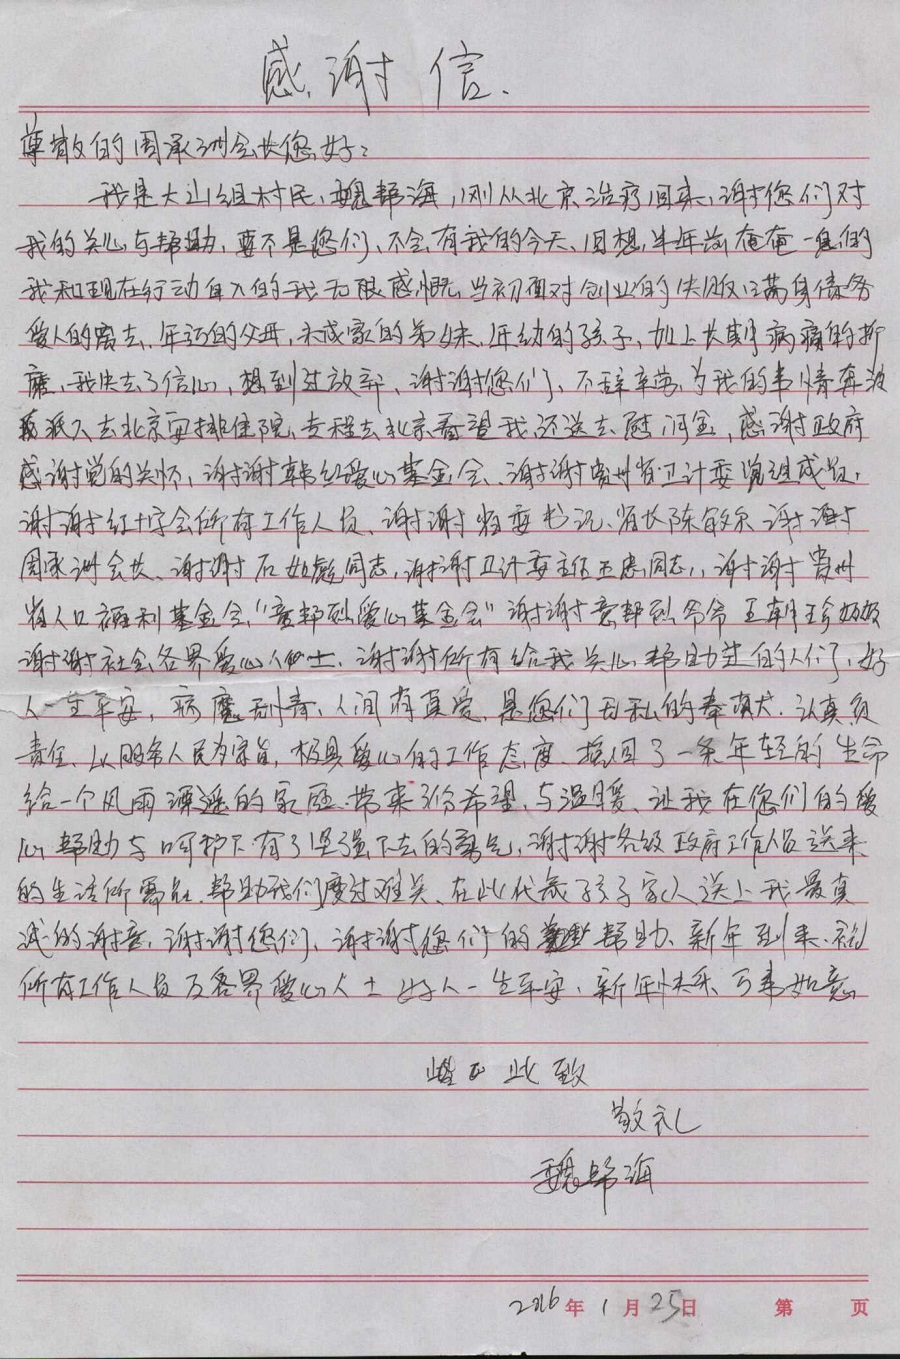 感谢信.
尊敬的周承洲会长您好:
我是大山组村民,魏帮海,刚从北京治疗回来,谢您们对
我的关心与帮助,要不是您们、不会有我的今天、回想,半年前奄奄一息的
我和现在行动自入的我无限感慨,当初面对创业的失败,满身债务
爱人的离去、年迈的父母,未成家的弟妹、年幼的孩子,加上长期病痛的折
磨、我失去了信心,想到过放弃、谢谢您们、不辞辛劳,为我的事情奔波
派人去北京安排住院、专程去北京看望我还送去慰问金,感谢政府
感谢党的关怀,谢谢韩红爱心基金会、谢谢贵州省卫计委党组成员,
谢谢红十字会所有工作人员、谢谢省委书记、省长陈敏尔 谢谢
周承洲会长、谢谢石如彪同志,谢谢卫计委主任王忠同志,,谢谢贵州
省人口福利基金会,"意帮烈爱心基金会"谢谢意帮烈爷爷王朝珍奶奶
谢谢社会各界爱心人士、谢谢所有给我关心帮助过的人们、好
人一生平安,病魔无情,人间有真爱、是您们无私的奉献、认真负
责任、以服务人民为宗旨,极具爱心的工作态度、挽回了一条年轻的生命
给一个风雨漂遥的家庭、带来了份希望、与温暖、让我在您们的爱
心帮助与呵护下有了坚强下去的勇气,谢谢各级政府工作人员送来
的生活所需品、帮助我们度过难关、在此代表孩子家人送上我最真
诚的谢意,谢谢您们、谢谢您们的帮助、新年到来、祝
所有工作人员及各界爱心人士好人一生平安、新年快乐、万事如意
此致
敬礼
魏帮海
2016年1月25日 第 页